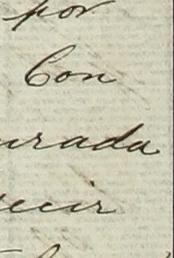 por
Con
urada
ecir